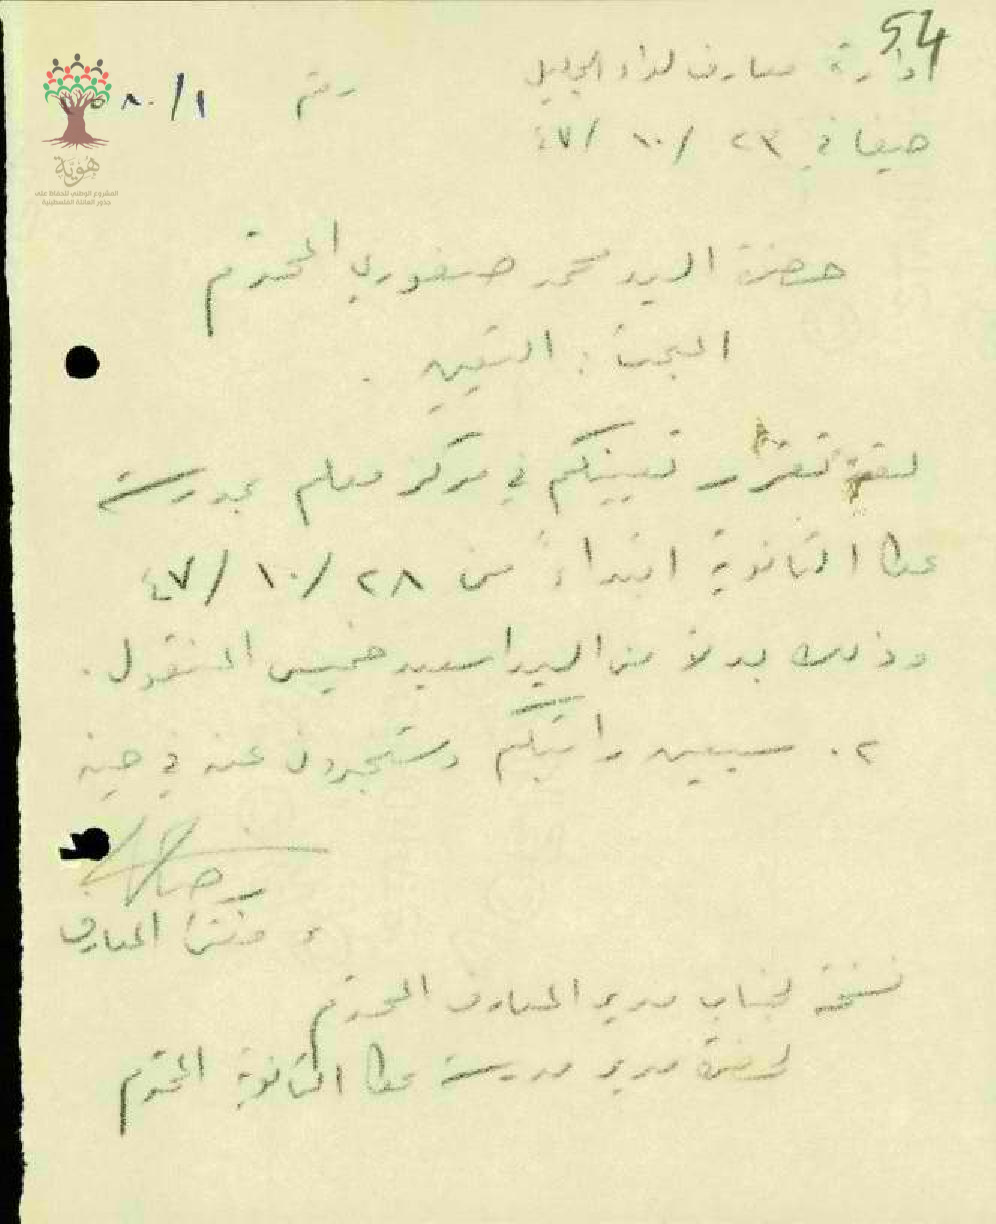 54
ادارة معارف لواء الجليل
رقم ٨٠/١
حيفا في ٢٣/١٠/٤٧
هُوِيَّة
المشروع الوطني للحفاظ على
جذور العائلة الفلسطينية
حضرة السيد محمد صفوري المحترم
المبحث : التعيين .
لقد تقرر تعيينكم في مركز معلم بمدرسة
عكا الثانوية ابتداءً من ٢٨/١٠/٤٧
وذلك بدلا من السيد اسعيد خميس المنقول.
٢. سيعين راتبكم وستخبرون عنه في حينه
مفتش المعارف
نسخة لجناب مدير المعارف المحترم
لحضرة مدير مدرسة عكا الثانوية المحترم